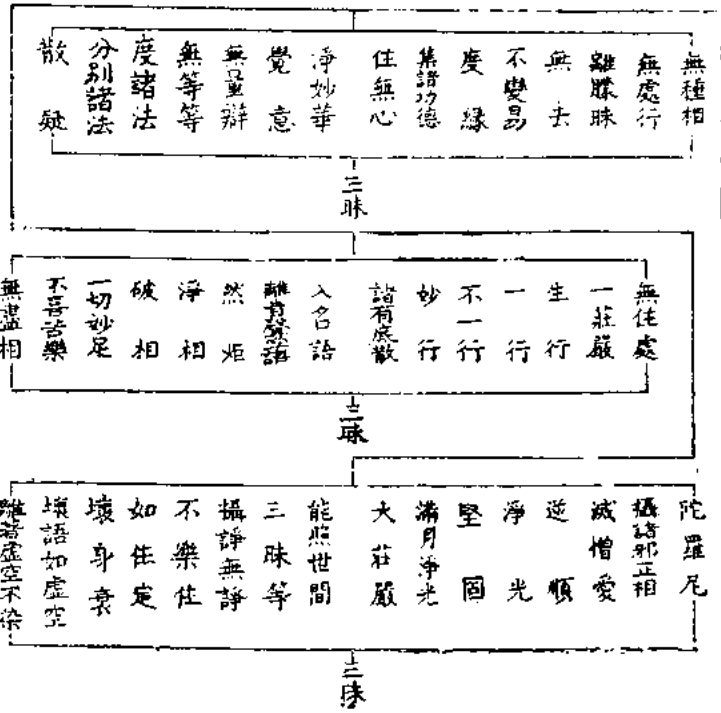 無種相
無處行
離朦昧
無去
不變易
度緣
集諸功德
住無心
淨妙華
覺意
無量辯
無等等
度諸法
分別諸法
散疑
三昧
無住處
一莊嚴
生行
一行
不一行
妙行
諸有底散
入名語
離音聲語
然炬
淨相
破相
一切妙足
不喜苦樂
無盡相
三昧
陀羅尼
攝諸邪正相
滅憎愛
逆順
淨光
堅固
滿月淨光
大莊嚴
能照世間
三昧等
攝諍無諍
不樂住
如住定
壞身衰
壞語如虛空
離著虛空不染
三昧